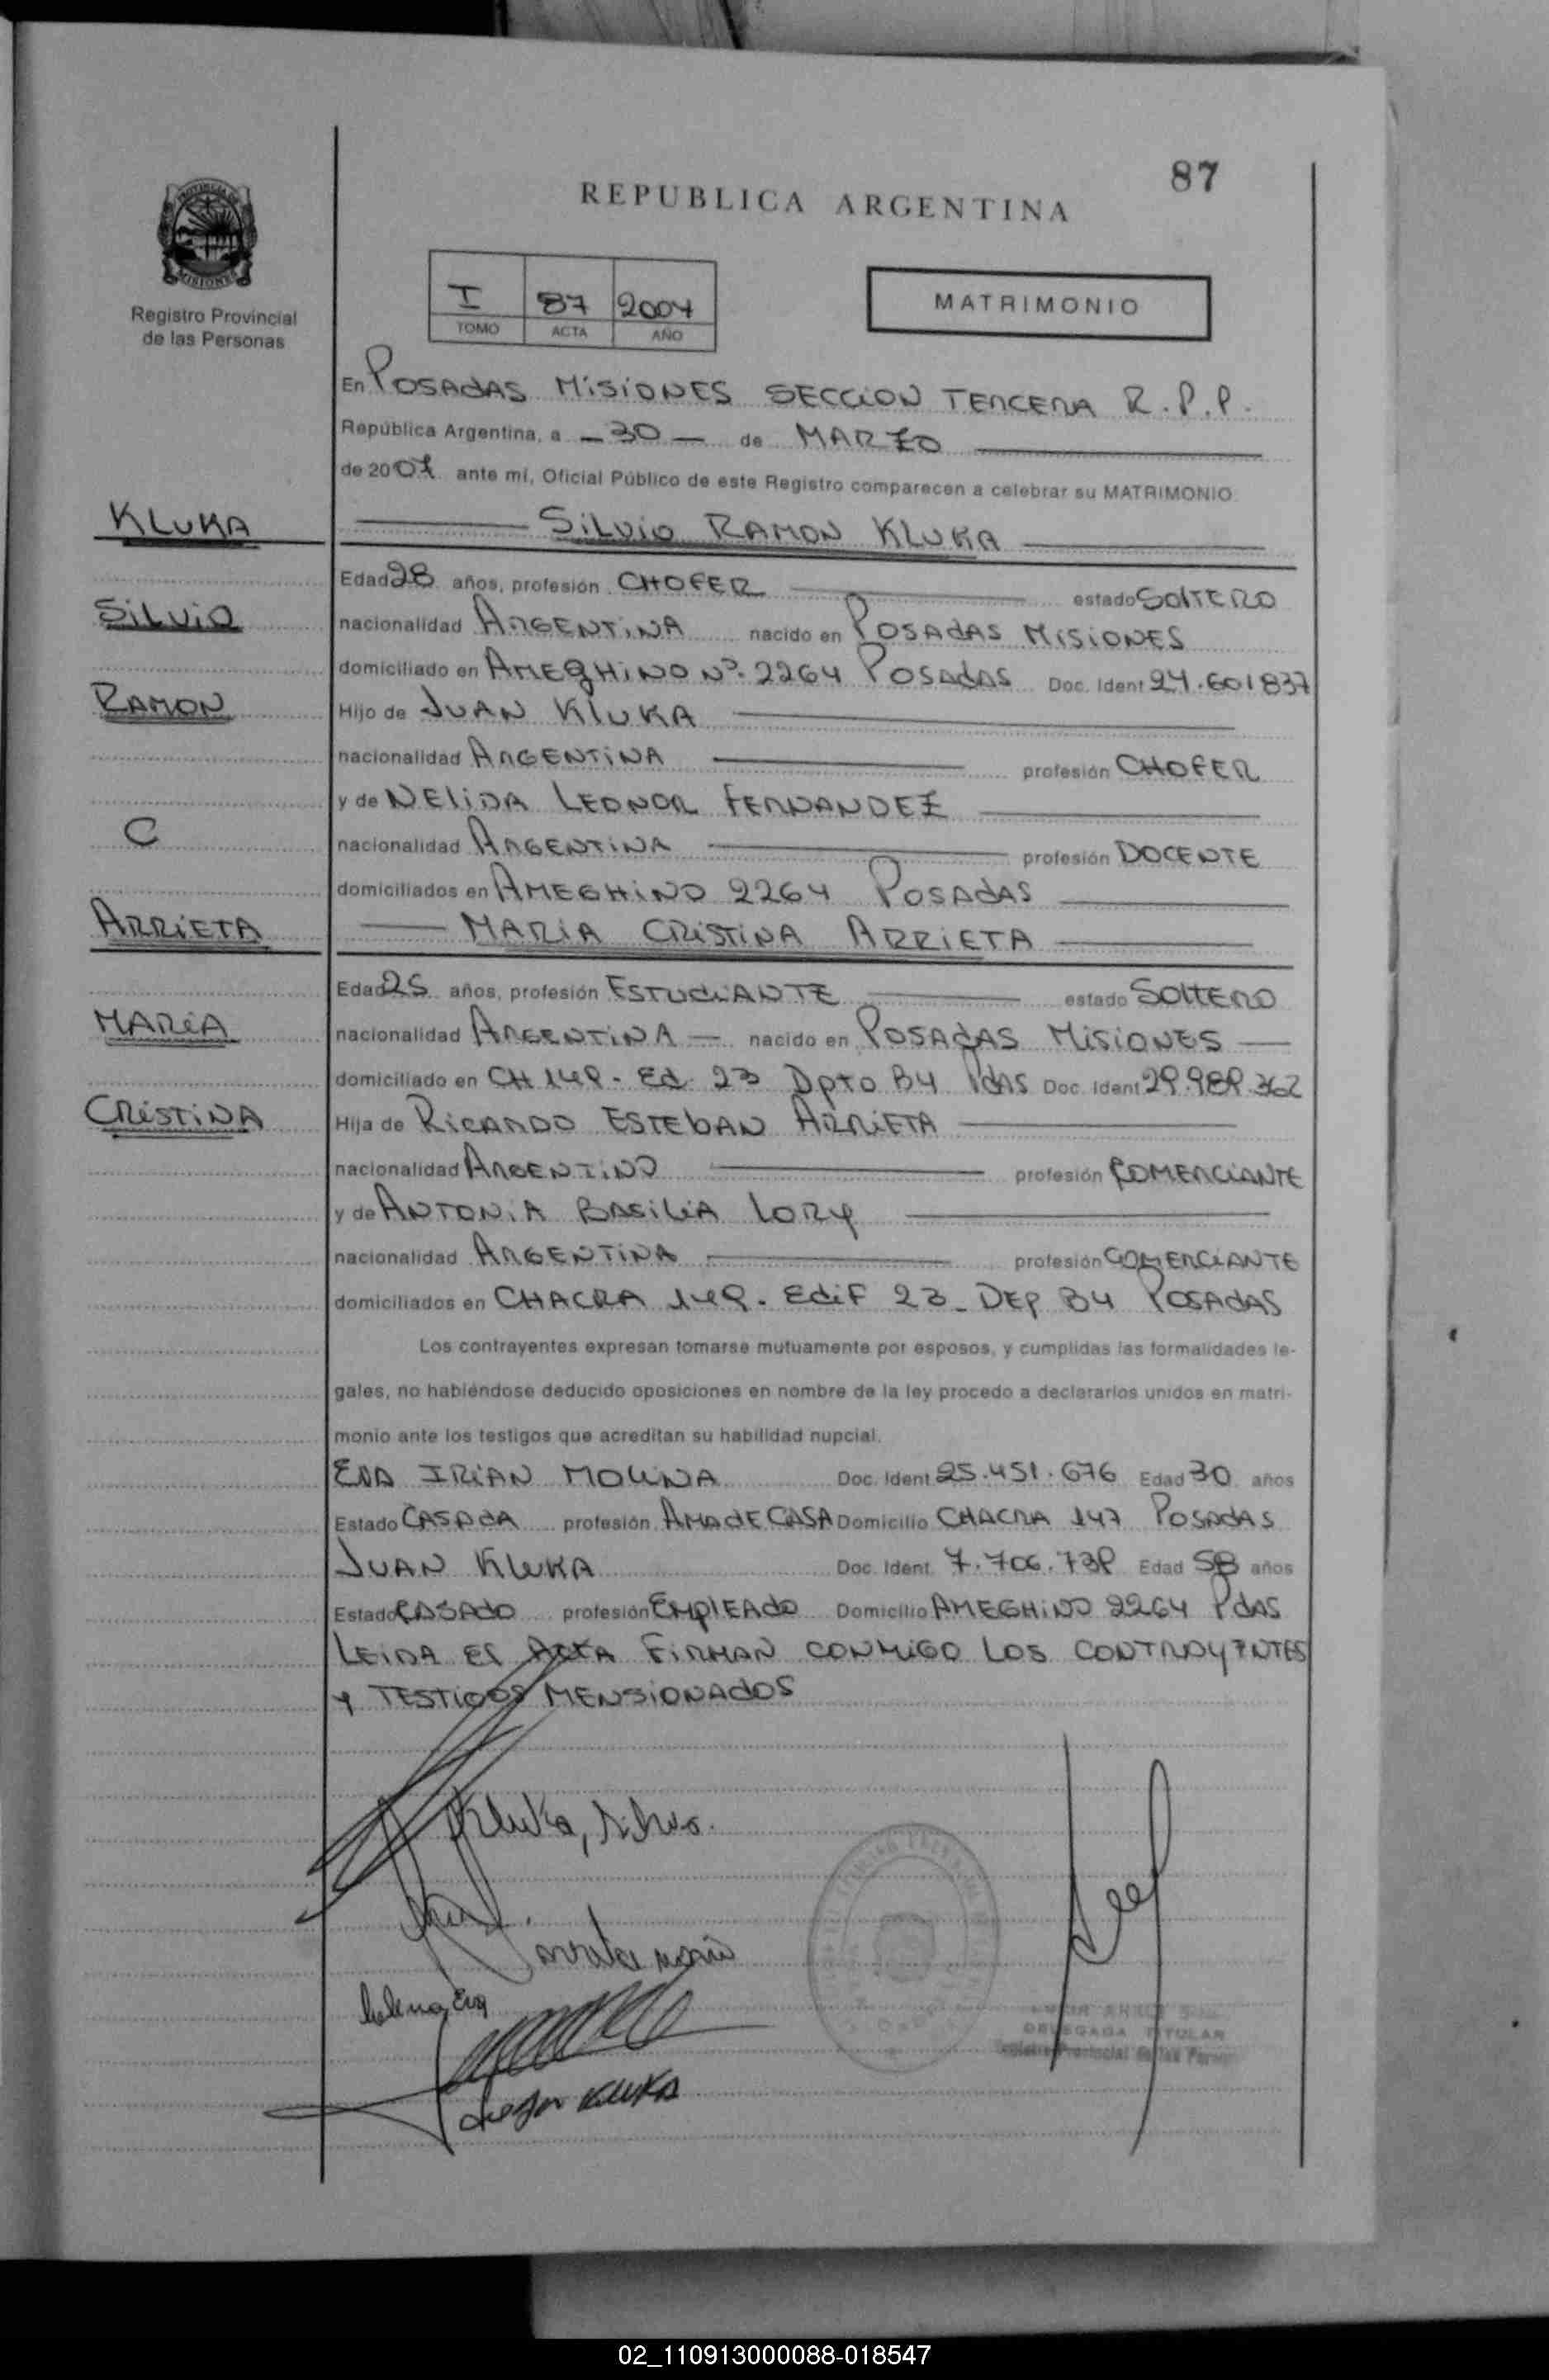 87
REPUBLICA ARGENTINA
PROVINCIA DE
MISIONES
Registro Provincial
de las Personas
I 87 2004
TOMO ACTA AÑO
MATRIMONIO
En POSADAS MISIONES SECCION TERCERA R.P.P.
República Argentina, a - 30 - de MARZO
de 200 ante mí, Oficial Público de este Registro comparecen a celebrar su MATRIMONIO
KLUKA
SILVIO RAMON KLUKA
Edad 28 años, profesión CHOFER estado SOLTERO
SILVIO
nacionalidad ARGENTINA nacido en POSADAS MISIONES
domiciliado en AMEGHINO Nº. 2264 POSADAS Doc. Ident 24.601837
RAMON
Hijo de JUAN KLUKA
nacionalidad ARGENTINA profesión CHOFER
y de NELIDA LEONOR FERNANDEZ
C
nacionalidad ARGENTINA profesión DOCENTE
domiciliados en AMEGHINO 2264 POSADAS
ARRIETA
MARIA CRISTINA ARRIETA
Edad 25 años, profesión ESTUDIANTE estado SOLTERO
MARIA
nacionalidad ARGENTINA - nacido en POSADAS MISIONES
domiciliado en CH 149 - Ed. 23 DPTO B4 PdAS Doc. Ident 29.989.362
CRISTINA
Hija de RICARDO ESTEBAN ARRIETA
nacionalidad ARGENTINO profesión COMERCIANTE
y de ANTONIA BASILIA LORY
nacionalidad ARGENTINA profesión COMERCIANTE
domiciliados en CHACRA 149. EDIF 23 - DEP B4 POSADAS
Los contrayentes expresan tomarse mutuamente por esposos, y cumplidas las formalidades le-
gales, no habiéndose deducido oposiciones en nombre de la ley procedo a declararlos unidos en matri-
monio ante los testigos que acreditan su habilidad nupcial.
IRIAN MOLINA Doc. Ident 25.451.676 Edad 30 años
Estado CASADA profesión AMA DE CASA Domicilio CHACRA 147 POSADAS
JUAN KLUKA Doc. Ident. 7.706.739 Edad 58 años
Estado CASADO profesión EMPLEADO Domicilio AMEGHINO 2264 PdAS
LEIDA EL ACTA FIRMAN CONMIGO LOS CONTRAYENTES
Y TESTIGOS MENSIONADOS
Kluka, Silvio.
Arrieta Maria
Molina, Eva
KLUKA
DELEGADA TITULAR
Registro Provincial de las Personas
02_110913000088-018547